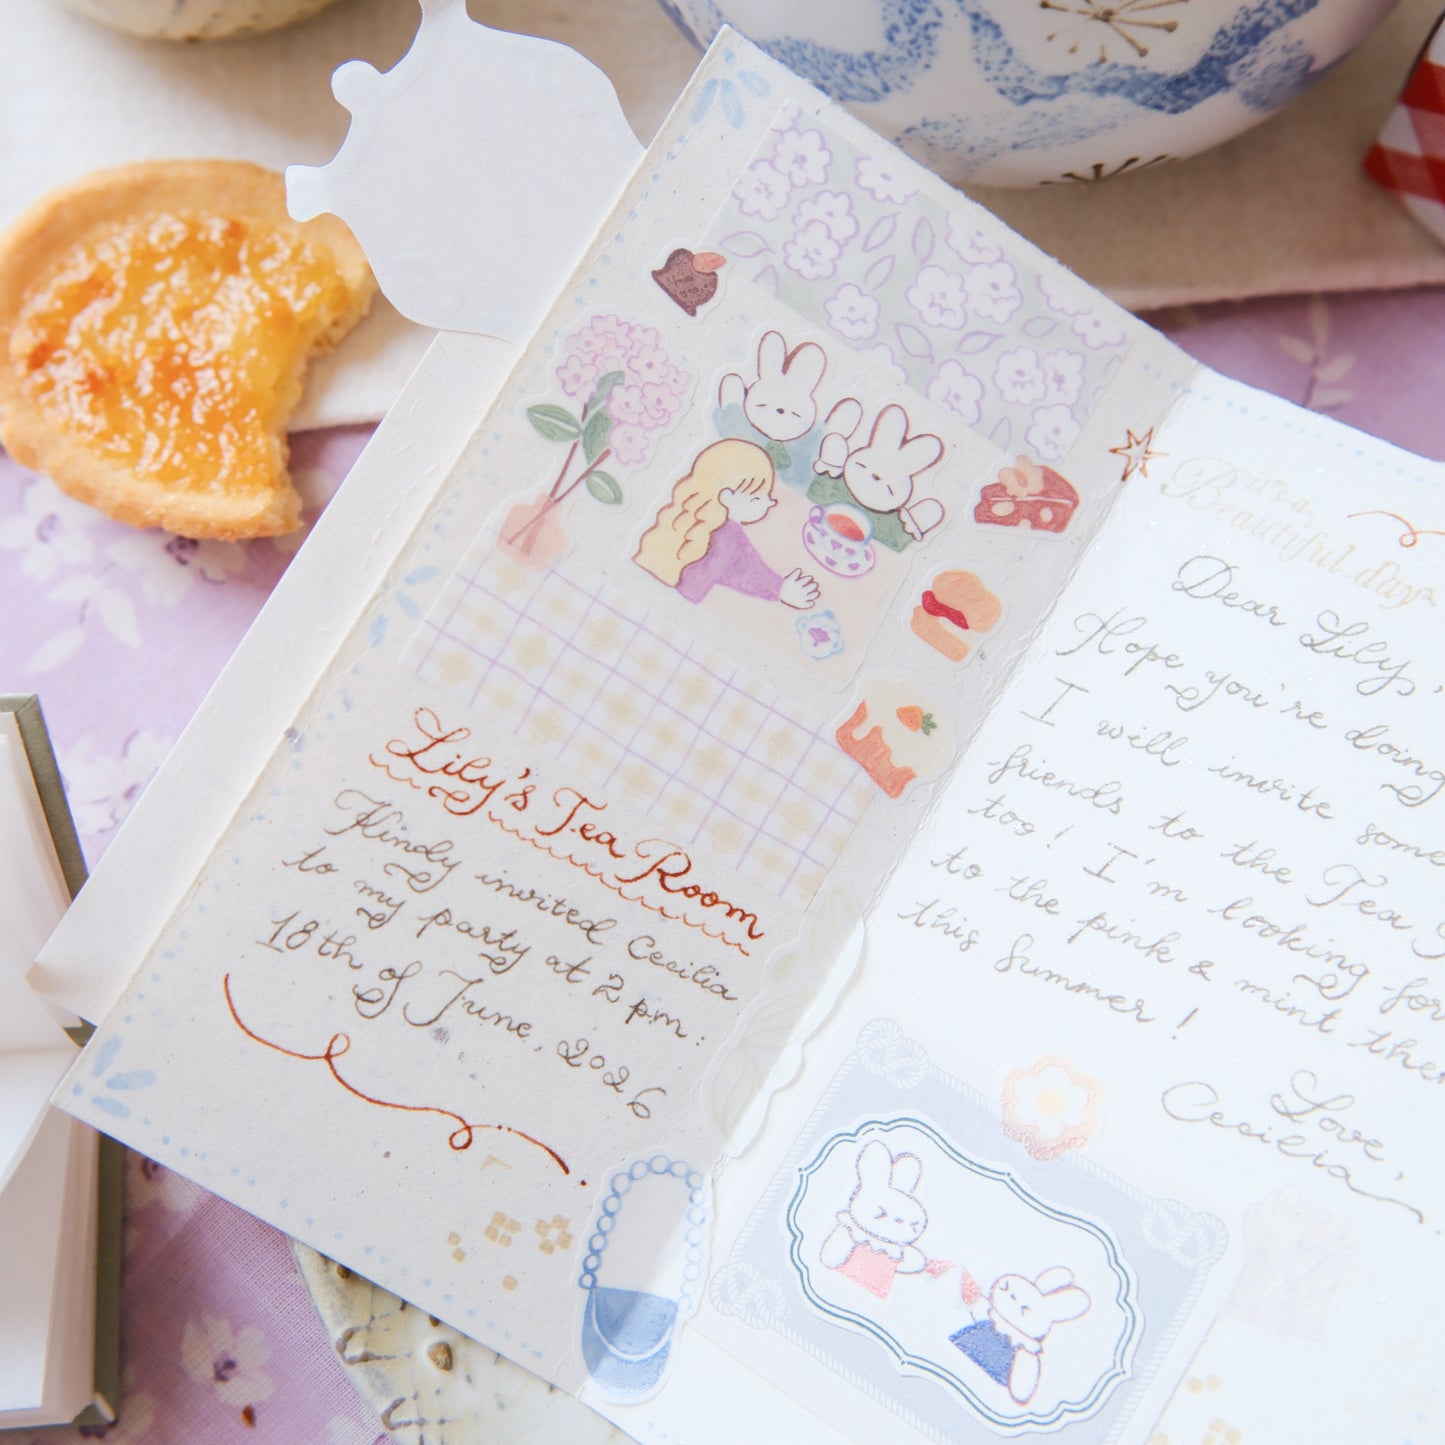 Lily's Tea Room
Kindy invited Cecilia
to my party at 2 pm.
18th of June, 2026
it's a
Beautiful day
Dear Lily,
Hope you're doing
I will invite some
friends to the Tea
too! I'm looking for
to the pink & mint
this Summer!
Love,
Cecilia